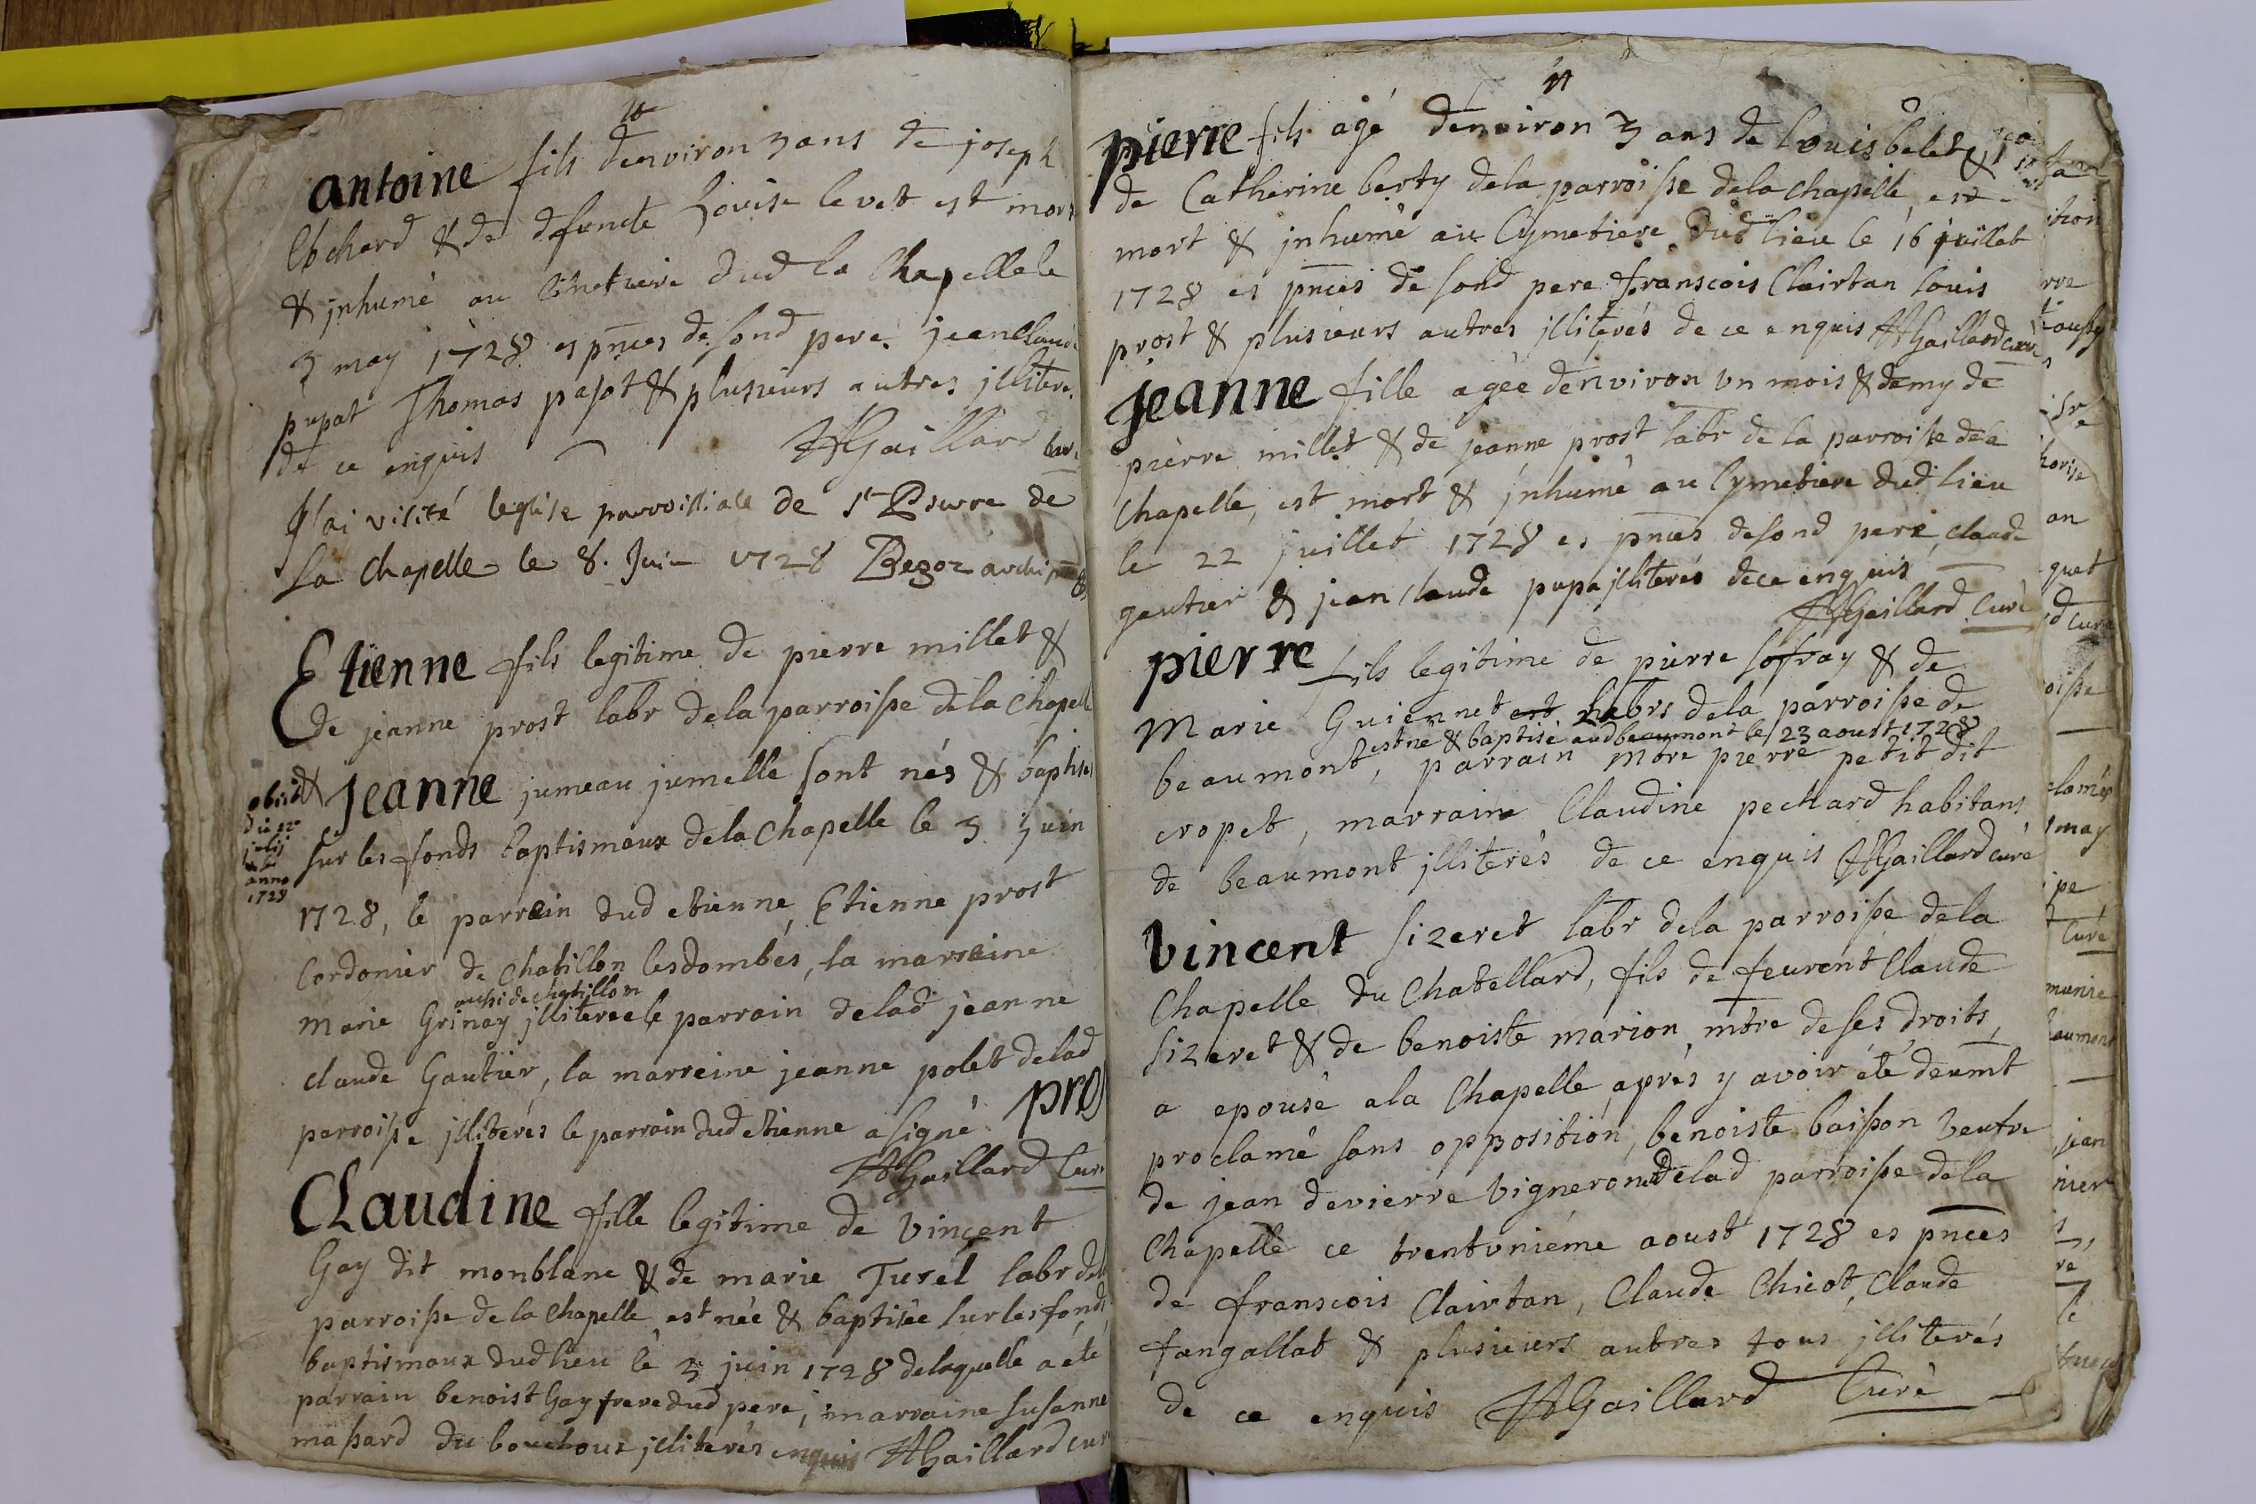 10
antoine fils denviron 3 ans de joseph
Ebchard & de defuncte Louise levet est mort
& jnhumé au Cimetiere dud la Chapelle le
3 may 1728 es pnces de sond pere jean Claude
pupat Thomas pajot & plusieurs autres jlliteré
de ce enquis HGaillard Curé
J'ai visité leglise parroissiale de St Pierre de
La Chapelle le 8. Juin 1728 Begoz archiptre
Etienne fils legitime de pierre millet &
de jeanne prost labr dela parroisse dela Chapelle
& jeanne jumeau jumelle sont nés & baptisés
obiit
die 22
julij
anno
1728
sur les fonds baptismaux dela Chapelle le 3 juin
1728, le parrein dud etienne, Etienne prost
Cordonier de Chatillon lesdombés, la marreine
aussi de chatillon
Marie Grinay jlliterée le parrain delad jeanne
claude Gautier, la marreine jeanne polet delad
parroisse jlliterés le parrain dud etienne a signé prost
HGaillard Curé
Claudine fille legitime de Vincent
Gay dit monblanc & de marie Turel labr dela
parroisse de la Chapelle est née & baptisée sur les fonds
baptismaux dud lieu le 3 juin 1728 de laquelle a été
parrain benoist Gay frere dud pere, marraine Susanne
massard du bouchoux jlliterés enquis HGaillard curé
11
pierre fils agé denviron 3 ans de Louis belet &
de Catherine berty dela parroisse dela chapelle, est
mort & jnhumé au Cymetiere dud lieu le 16 juillet
1728 es pnces de sond pere franscois Clairtan Louis
prost & plusieurs autres jlliterés de ce enquis HGaillard curé
jeanne fille agée denviron un mois & demy de
pierre millet & de jeanne prost labr de la parroisse dela
Chapelle, est mort & jnhumé au Cymetiere dud lieu
le 22 juillet 1728 es pnces de sond pere, claude
gautier & jean Claude pupa jlliterés de ce enquis
HGaillard Curé
pierre fils legitime de pierre sofray & de
Marie Guiennet est habrs dela parroisse de
est né & baptisé aud beaumont le 23 aoust 1728
beaumont, parrain Mtre pierre petit dit
cropet, marraine Claudine pechard habitans
de beaumont jlliterés de ce enquis HGaillard curé
Vincent sizeret labr dela parroisse dela
Chapelle du Chatellard, fils de feurent Claude
sizeret & de benoiste marion, mtre de ses droits,
a epousé ala Chapelle, aprés y avoir été deumt
proclamé sans opposition, benoiste baisson Veufve
de jean devierre Vigneron delad parroisse dela
Chapelle ce trentuniéme aoust 1728 es pnces
de franscois Clairtan, Claude Chicot, Claude
fangallat & plusieurs autres tous jlliterés
de ce enquis HGaillard Curé